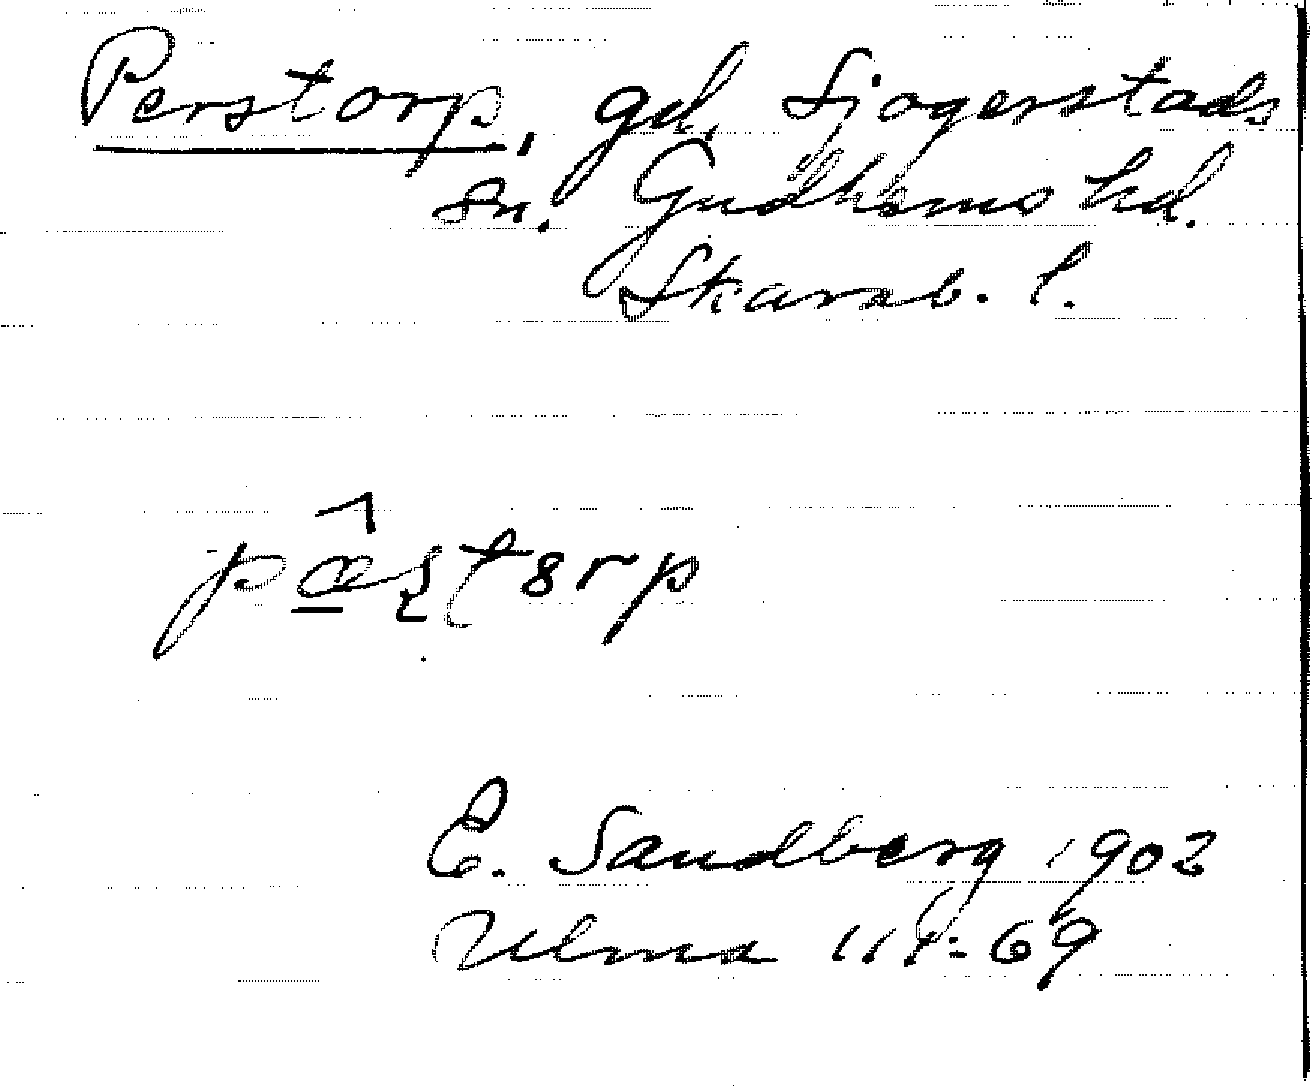 Perstorp, gd, Sjogerstads
sn. Gudhems hd.
Skarab. l.
E. Sandberg 1902
Ulma 111:69